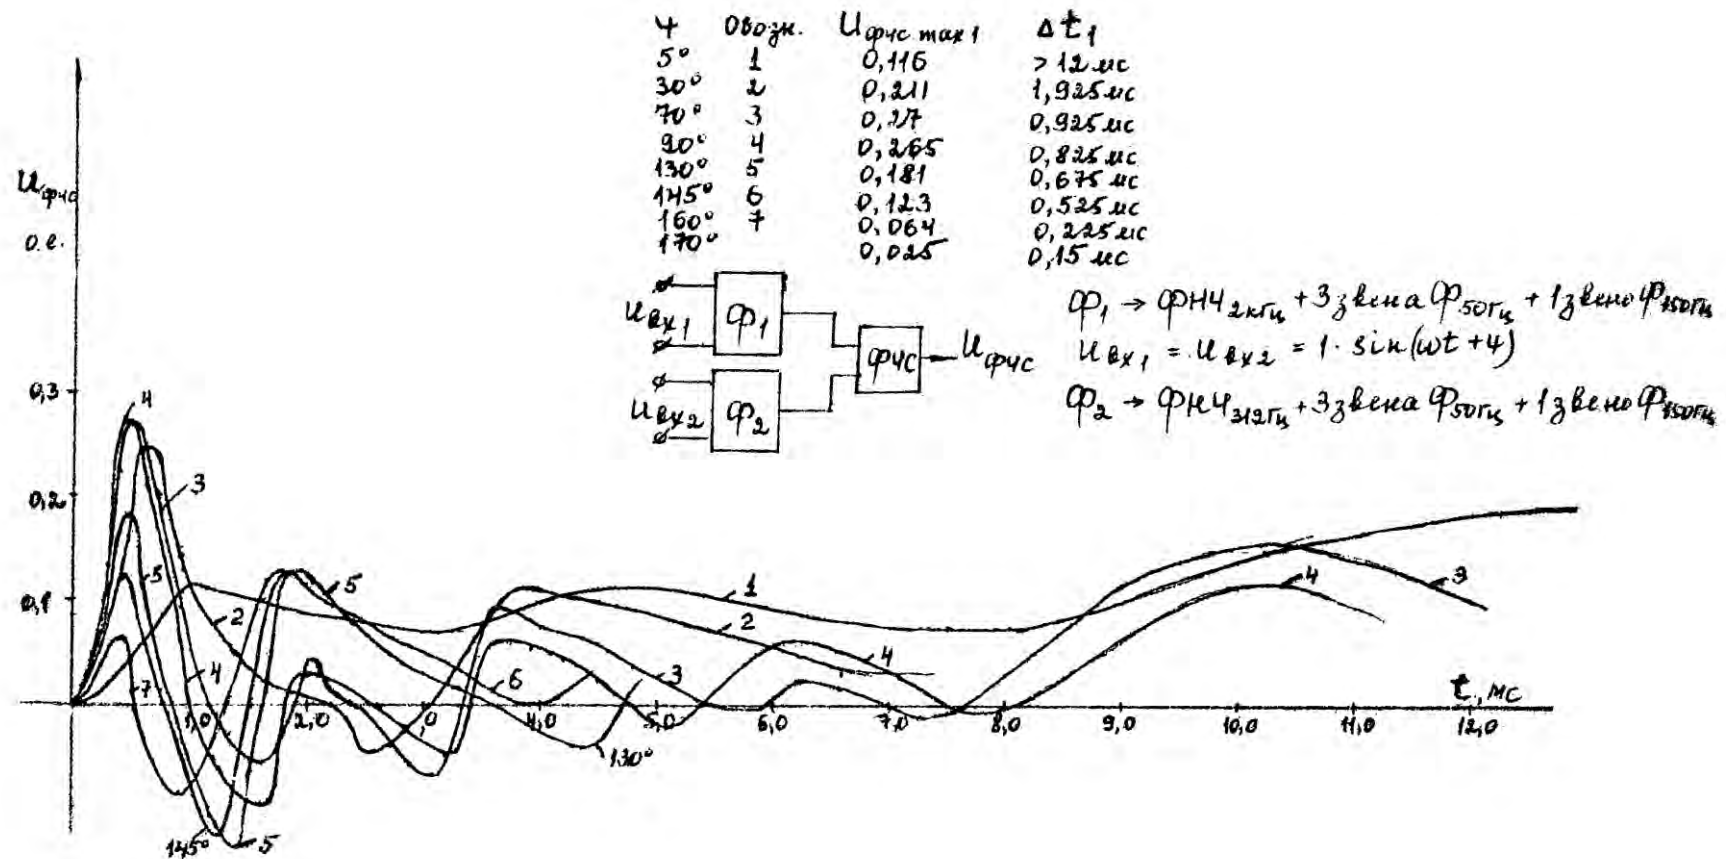 Ψ Обозн. Uфчс max1 Δt1
5° 1 0,116 >12 мс
30° 2 0,211 1,925 мс
70° 3 0,27 0,925 мс
90° 4 0,265 0,825 мс
130° 5 0,181 0,675 мс
145° 6 0,123 0,525 мс
160° 7 0,064 0,225 мс
170° 0,025 0,15 мс
Uфчс
о.е.
Uвх1 Ф1
ФЧС Uфчс
Uвх2 Ф2
Ф1 → ФНЧ2кГц + 3 звена Ф50Гц + 1 звено Ф150Гц
Uвх1 = Uвх2 = 1· sin(ωt+Ψ)
Ф2 → ФНЧ312Гц + 3 звена Ф50Гц + 1 звено Ф150Гц
0,3
0,2
0,1
4
3
5
2
4
7
5
6
1
2
3
4
4
3
130°
145°
5
t, мс
1,0 2,0 ,0 4,0 5,0 6,0 7,0 8,0 9,0 10,0 11,0 12,0